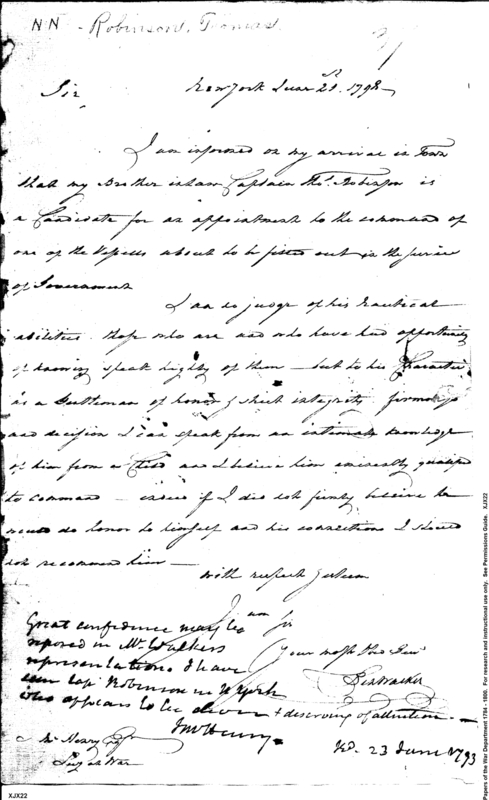 NN - Robinson, Thomas
Sir
New York June 21st. 1798
I am informed on my arrival in Town
that my Brother in law Captain Thos. Robinson is
a Candidate for an appointment to the command of
one of the Vessels about to be fitted out in the service
of Government
I am no judge of his Nautical
abilities. those who are and who have had opportunity
of knowing speak highly of them — but to his Character
as a Gentleman of honor, strict integrity firmness
and decision I can speak from an intimate knowledge
of him from a Child and I believe him eminently qualified
to command — indeed if I did not firmly believe he
would do honor to himself and his connections I should
not recommend him —
with respect & esteem
I am Sir
Your most Obe Serv
Ben Walker
Great confidence may be
reposed in Mr. Walkers
representations. I have
seen Cap. Robinson in N York
who appears to be clever & deserving of attention. —
JMcHenry.
Rd. 23 June 1798
Mc Henry Esqr
Secy at War
XJX22
Papers of the War Department 1784 - 1800. For research and instructional use only. See Permissions Guide. XJX22